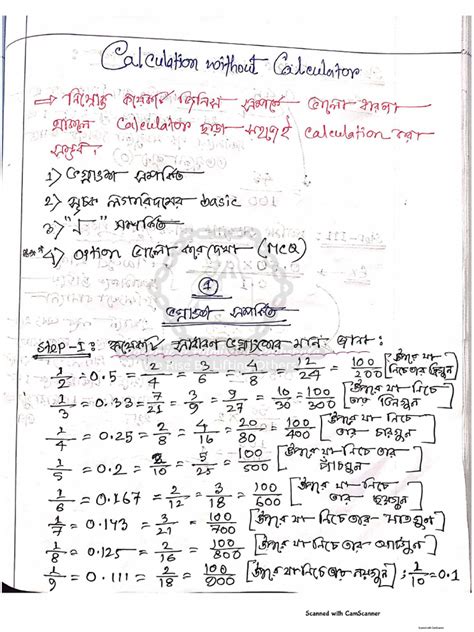 Calculation without Calculator
→ নিম্নোক্ত কয়েকটি জিনিস সম্পর্কে ভালো ধারণা
থাকলে Calculator ছাড়া সহজেই calculation করা
সম্ভব।
1) ভগ্নাংশ সম্পর্কিত
2) সূচক লগারিদমের basic
3) "√" সম্পর্কিত
4) option ভালো করে দেখা (MCQ)
1
ভগ্নাংশ সম্পর্কিত
Step-I: কয়েকটি সাধারণ ভগ্নাংশের মান জানা:
1/2 = 0.5 = 2/4 = 3/6 = 4/8 = 12/24 = 100/200 [উপরে যা নিচে তার দ্বিগুন]
1/3 = 0.33 = 7/21 = 3/9 = 9/27 = 10/30 = 100/300 [উপরে যা নিচে তার তিনগুন]
1/4 = 0.25 = 2/8 = 4/16 = 20/80 = 100/400 [উপরে যা নিচে তার চারগুন]
1/5 = 0.2 = 2/10 = 5/25 = 100/500 [উপরে যা নিচে তার পাঁচগুন]
1/6 = 0.167 = 2/12 = 3/18 = 100/600 [উপরে যা নিচে তার ছয়গুন]
1/7 = 0.143 = 3/21 = 100/700 [উপরে যা নিচে তার সাতগুন]
1/8 = 0.125 = 2/16 = 100/800 [উপরে যা নিচে তার আটগুন]
1/9 = 0.111 = 2/18 = 100/900 [উপরে যা নিচে তার নয়গুন] ; 1/10 = 0.1
Scanned with CamScanner